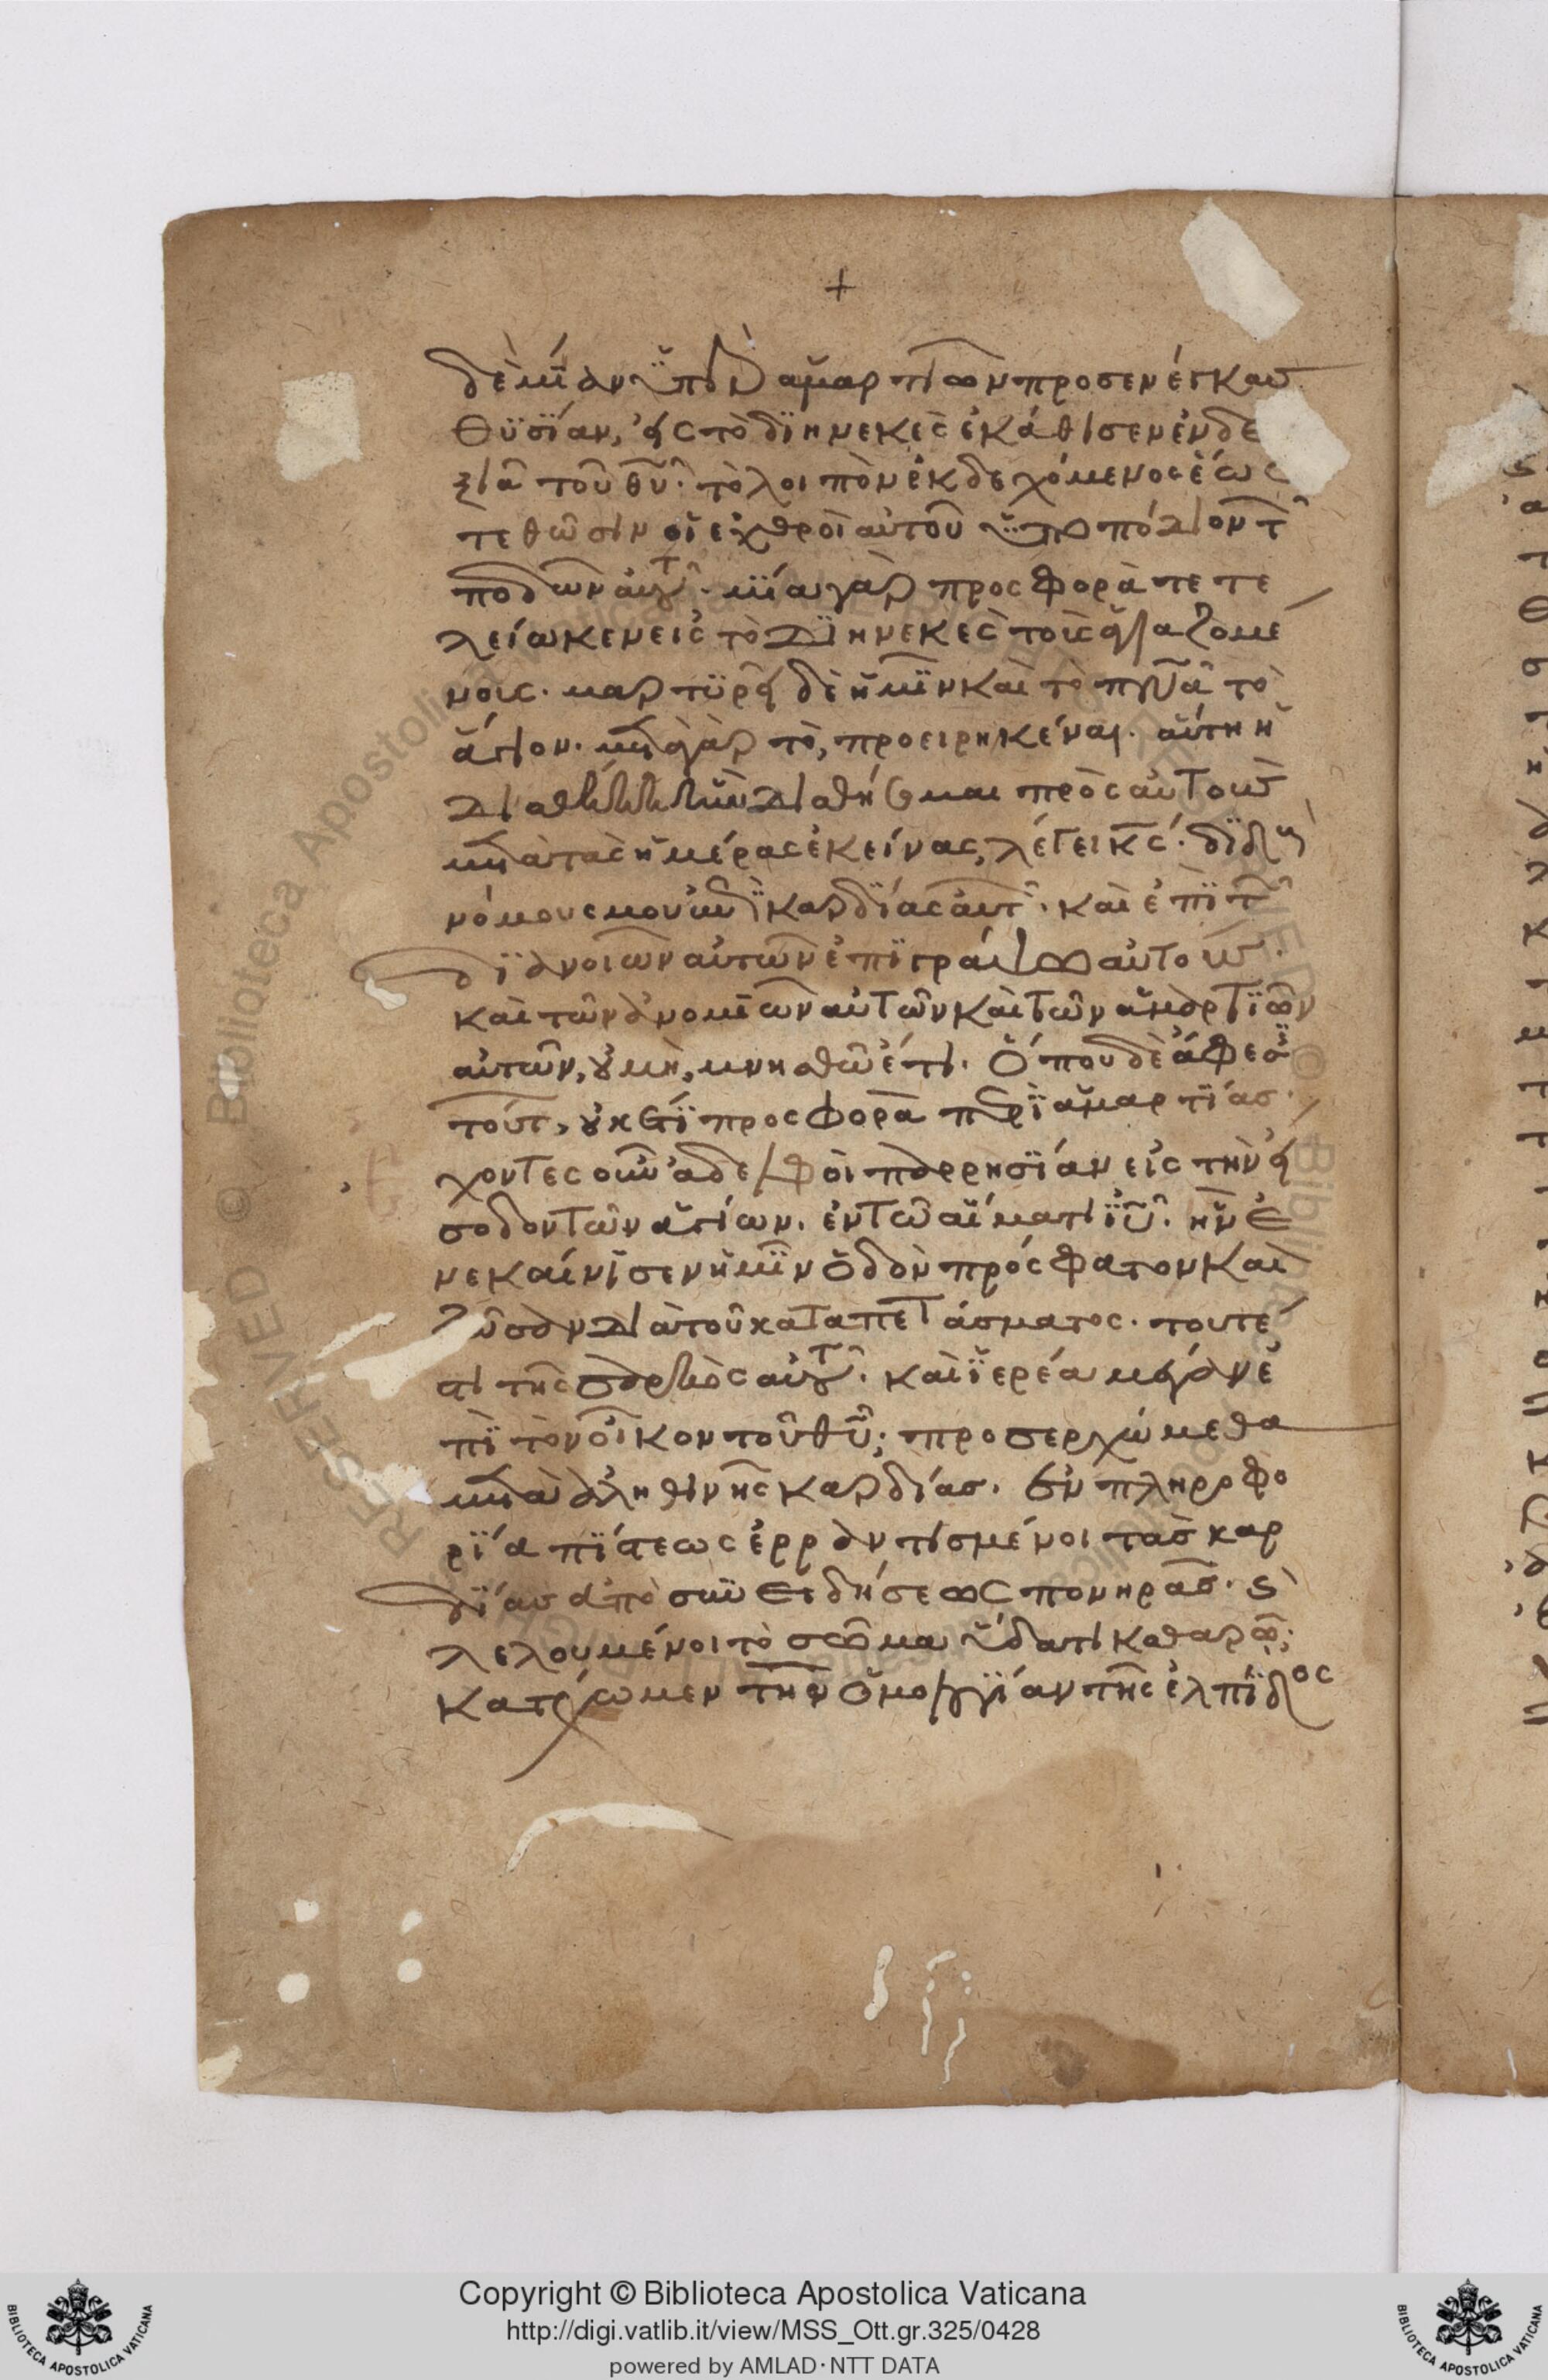 +
δὲ μίαν ὑπὲρ ἁμαρτιῶν προσενέγκας
θυσίαν, εἰς τὸ διηνεκὲς ἐκάθισεν ἐν δε
ξιᾶ τοῦ θυ̅. τὸ λοιπὸν ἐκδεχόμενος ἕως
τεθῶσιν οἱ ἐχθροὶ αὐτοῦ ὑποπόδιον τ
ποδῶν αὐτοῦ. μία γὰρ προσφορὰ τετε
λείωκεν εἰς τὸ διηνεκὲς τοὺς ἁγιαζομέ
νους. μαρτυρεῖ δὲ ἡμῖν καὶ τὸ πνα̅ τὸ
ἅγιον. μετὰ γὰρ τὸ, προειρηκέναι. αὕτη ἡ
διαθήκη ἣν διαθήσομαι πρὸς αὐτοὺς
μετὰ τὰς ἡμέρας ἐκείνας, λέγει κς̅. διδοὺς
νόμους μου ἐπὶ καρδίας αὐτ. καὶ ἐπὶ τ
διανοιῶν αὐτῶν ἐπιγράψω αὐτούς.
καὶ τῶν ἀνομιῶν αὐτῶν καὶ τῶν ἁμαρτιῶν
αὐτῶν, οὐ μὴ, μνησθῶ ἔτι. ὅπου δὲ ἄφεσ
τούτ, οὐκέτι προσφορὰ περὶ ἁμαρτίας.
χοντες οὖν ἀδελφοὶ παρρησίαν εἰς τὴν εἴ
σοδον τῶν ἁγίων. ἐν τῶ αἵματι ιυ̅. ἣν ἐ
νεκαίνισεν ἡμῖν ὁδὸν πρόσφατον καὶ
ζῶσαν διὰ τοῦ καταπετάσματος. τουτέ
στι τῆς σαρκὸς αὐτοῦ. καὶ ἱερέα μέγαν ἐ
πὶ τὸν οἶκον τοῦ θυ̅; προσερχώμεθα
μετὰ ἀληθινῆς καρδίας. ἐν πληροφο
ρία πίστεως ἐρραντισμένοι τὰς καρ
δίας ἀπὸ συνειδήσεως πονηρᾶς. ϗ
λελουμένοι τὸ σῶμα ὕδατι καθαρῶ;
κατέχωμεν τὴν ὁμολογίαν τῆς ἐλπίδος
Copyright © Biblioteca Apostolica Vaticana
http://digi.vatlib.it/view/MSS_Ott.gr.325/0428
powered by AMLAD·NTT DATA
BIBLIOTECA APOSTOLICA VATICANA
BIBLIOTECA APOSTOLICA VATICANA